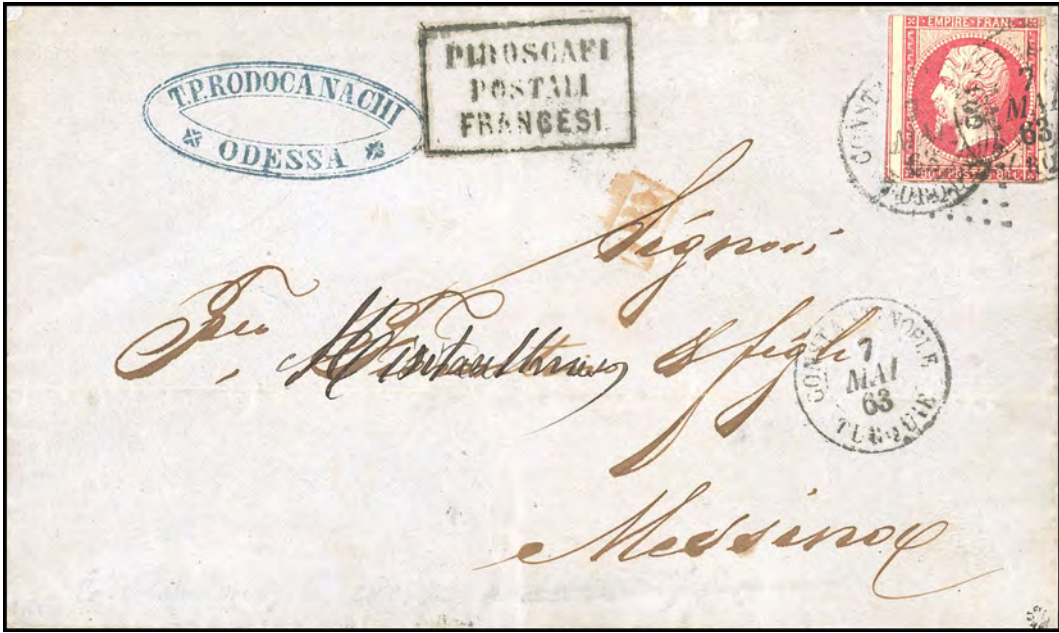 T.P.RODOCANACHI
ODESSA
PIROSCAFI
POSTALI
FRANCESI
EMPIRE FRANC
7
MAI
63
Signori
Fru
& figli
Messina
CONSTANTINOPLE
7
MAI
63
TURQUIE